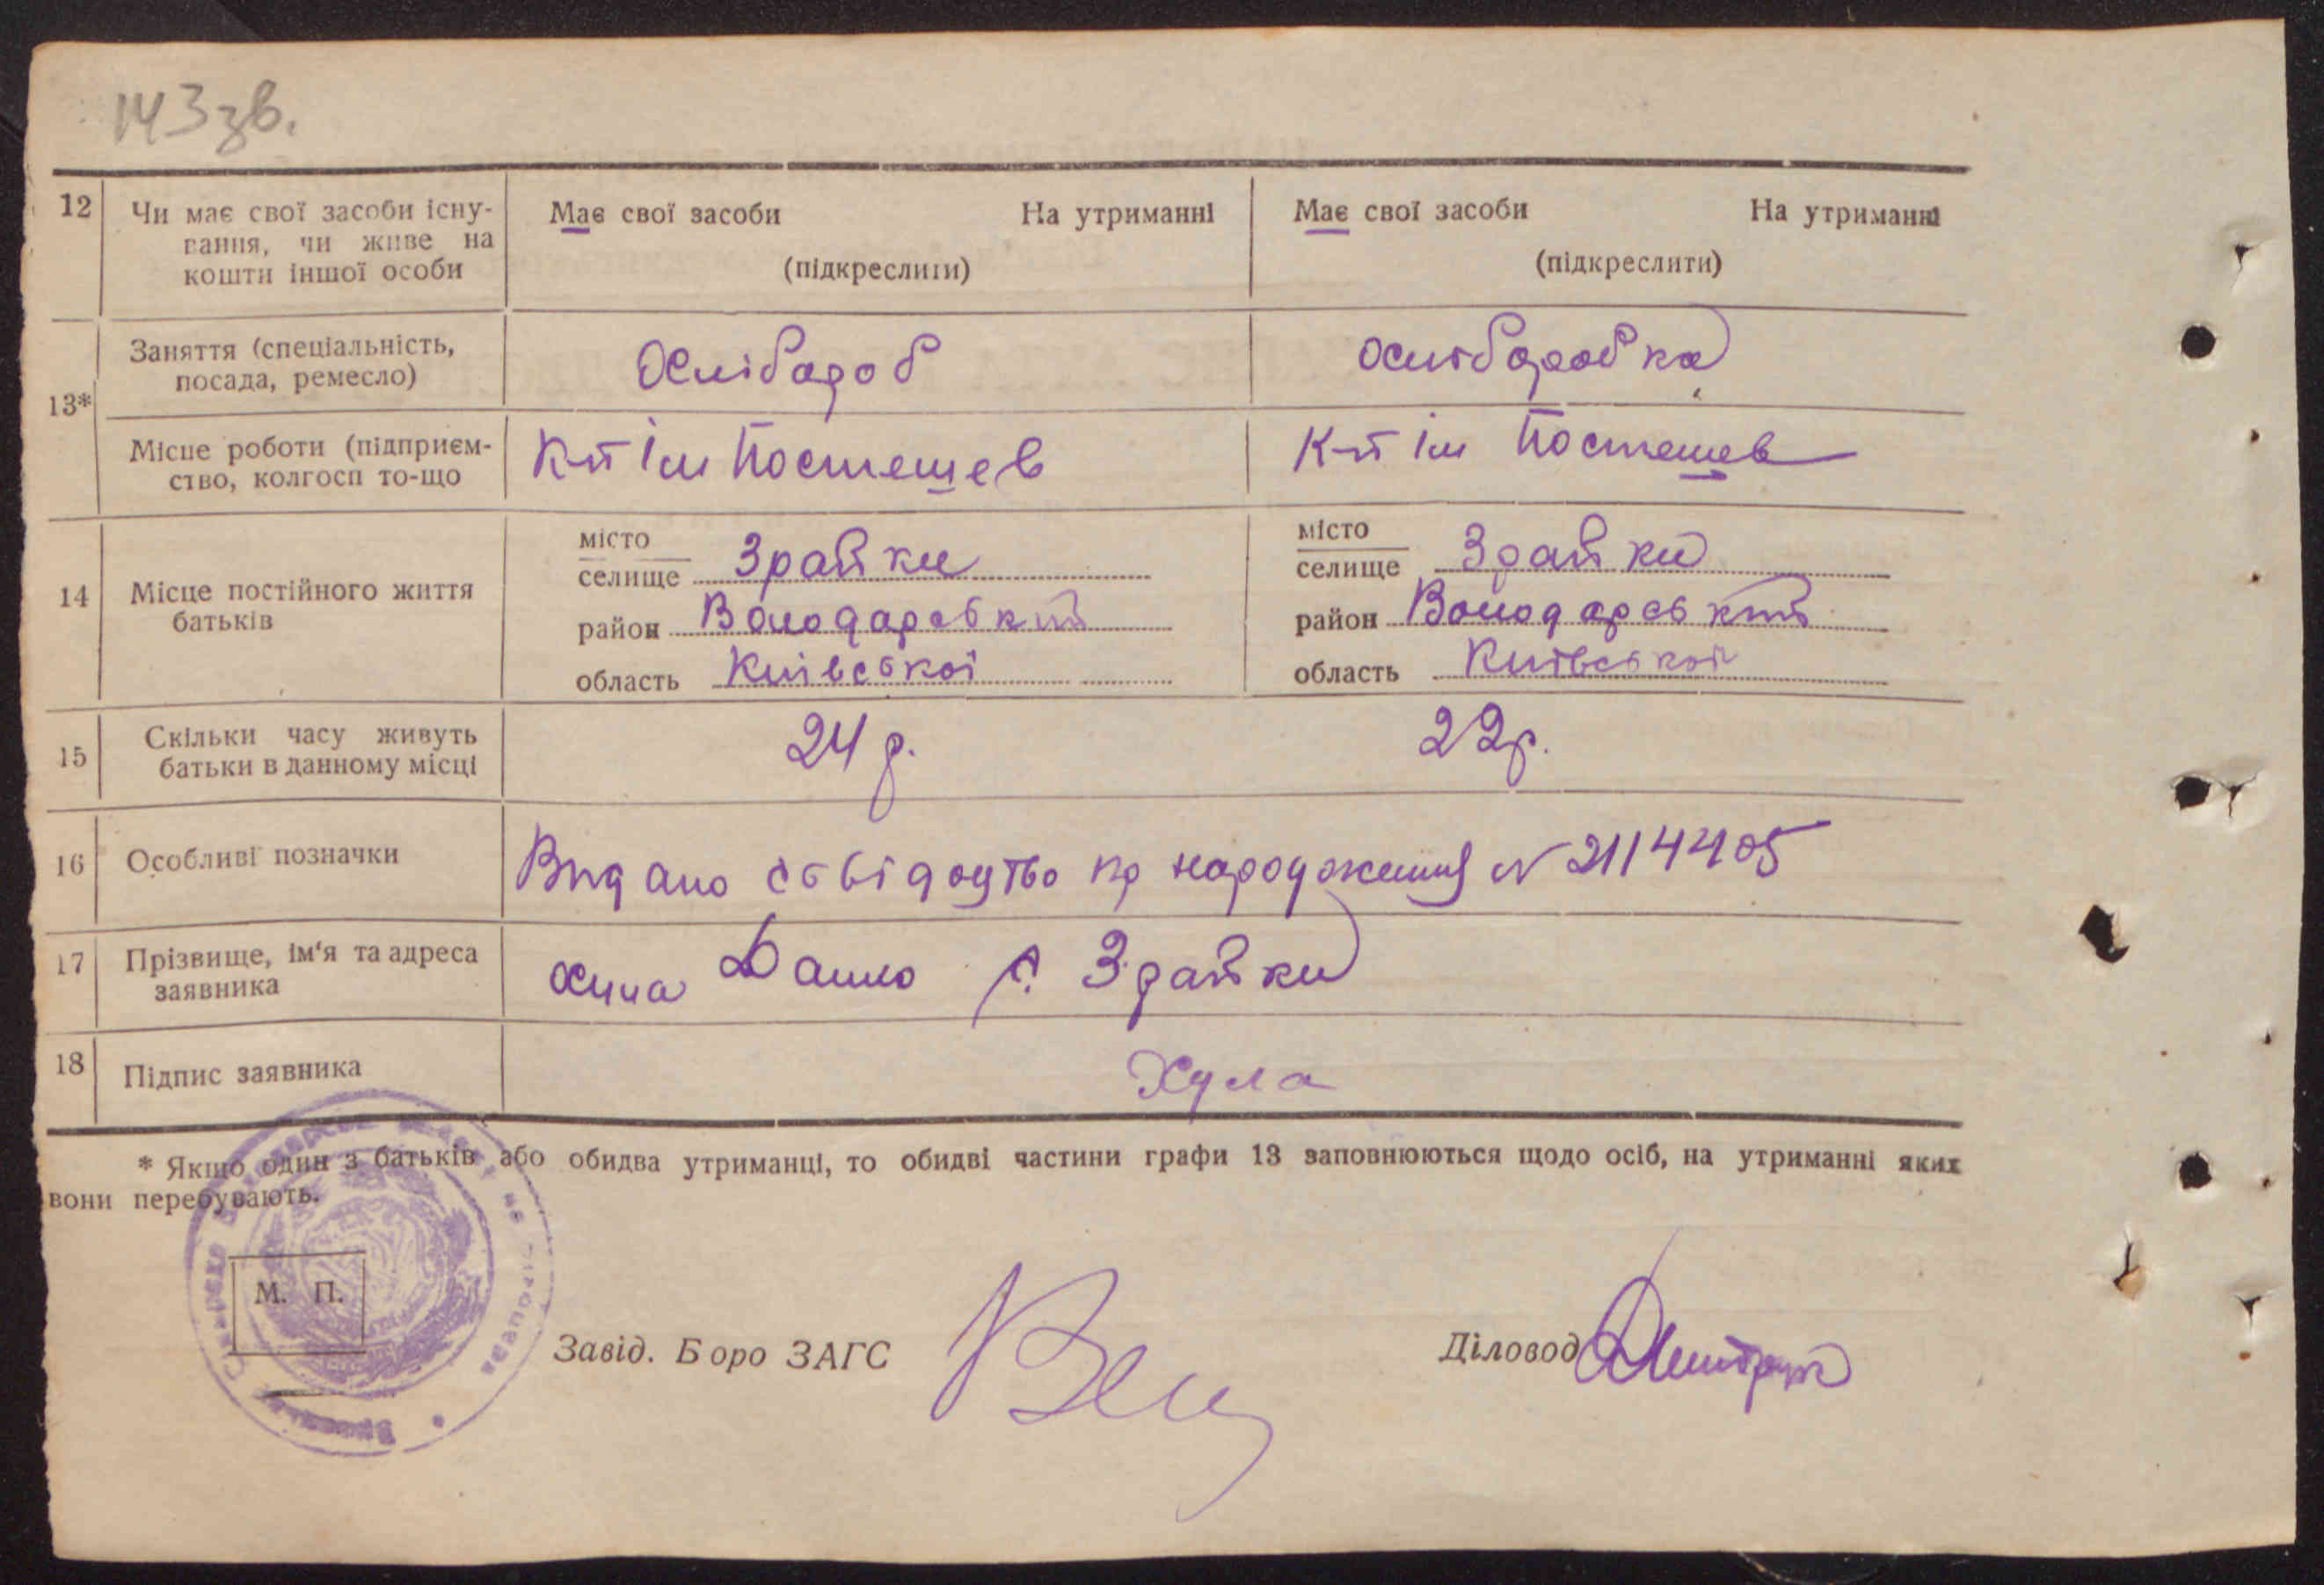 143 зв.
12 Чи має свої засоби існу- Має свої засоби На утриманні Має свої засоби На утриманні
вання, чи живе на
кошти іншої особи (підкреслити) (підкреслити)
Заняття (спеціальність,
посада, ремесло)
13*
Місце роботи (підприєм- К-п ім Постешев К-п ім Постешев
ство, колгосп то-що
місто місто
селище Зрайки селище Зрайки
14 Місце постійного життя
батьків
район Володарський район Володарський
область Київської область Київської
15 Скільки часу живуть 24 р. 22 р.
батьки в данному місці
16 Особливі позначки Видано про народження N 2114405
17 Прізвище, ім'я та адреса с. Зрайки
заявника
18 Підпис заявника Хула
* Якщо один з батьків або обидва утриманці, то обидві частини графи 13 заповнюються щодо осіб, на утриманні яких
вони перебувають.
М. П.
Завід. Боро ЗАГС Діловод